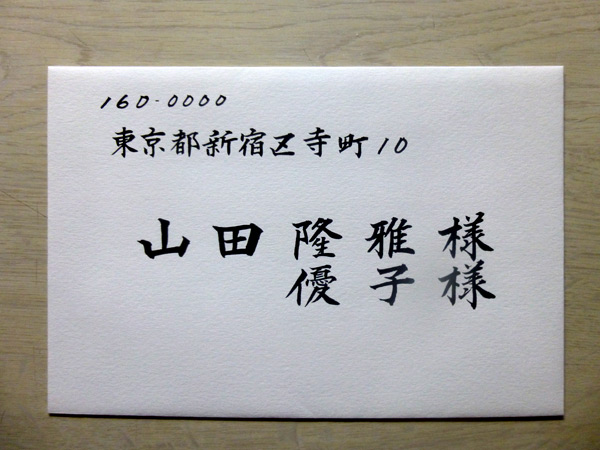 160-0000
東京都新宿区寺町10
山田隆雅様
優子様